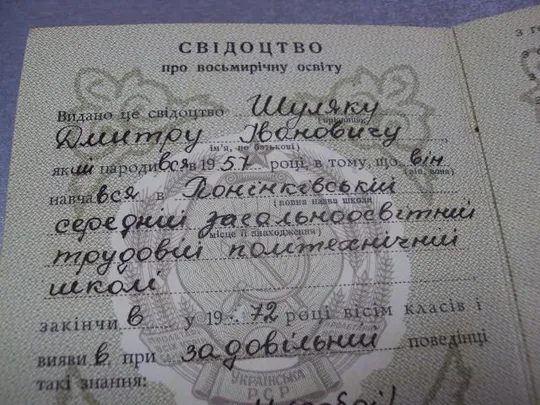 СВІДОЦТВО
про восьмирічну освіту
Видано це свідоцтво Шуляку
(прізвище,
Дмитру Івановичу
ім'я, по батькові)
який народився в 1957 році, в тому, що він
(він, вона)
навчався в Понінківській
(повна назва школи
середній загальноосвітній
місце її знаходження)
трудовій політехнічній
школі
закінчив у 1972 році вісім класів і
виявив при задовільній поведінці
такі знання:
УКРАЇНСЬКА
РСР
з г